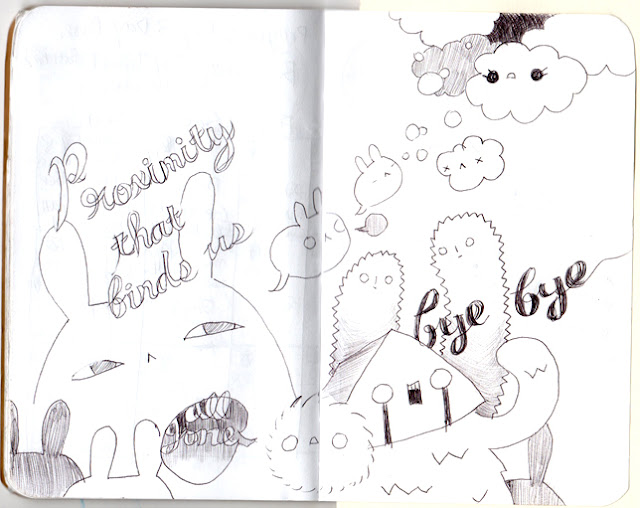 Proximity
that
binds us
all
gone
bye bye